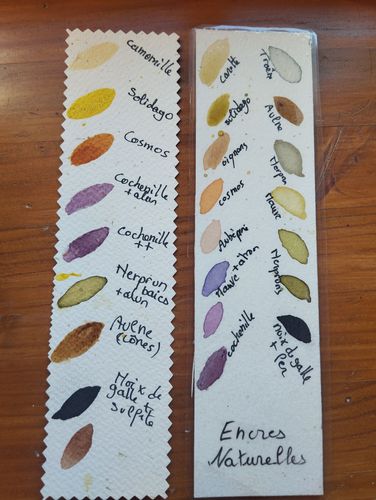 camomille
Solidago
Cosmos
Cochenille
+ alun
Cochenille
++
Nerprun
baies
+ alun
Aulne
(cônes)
Noix de
galle +
Sulfate
carotte
solidago
oignons
cosmos
Aubépine
Mauve + citron
cochenille
Troène
Aulne
Nerprun
Mauve
Nerpruns
Noix de galle
+ fer
Encres
Naturelles